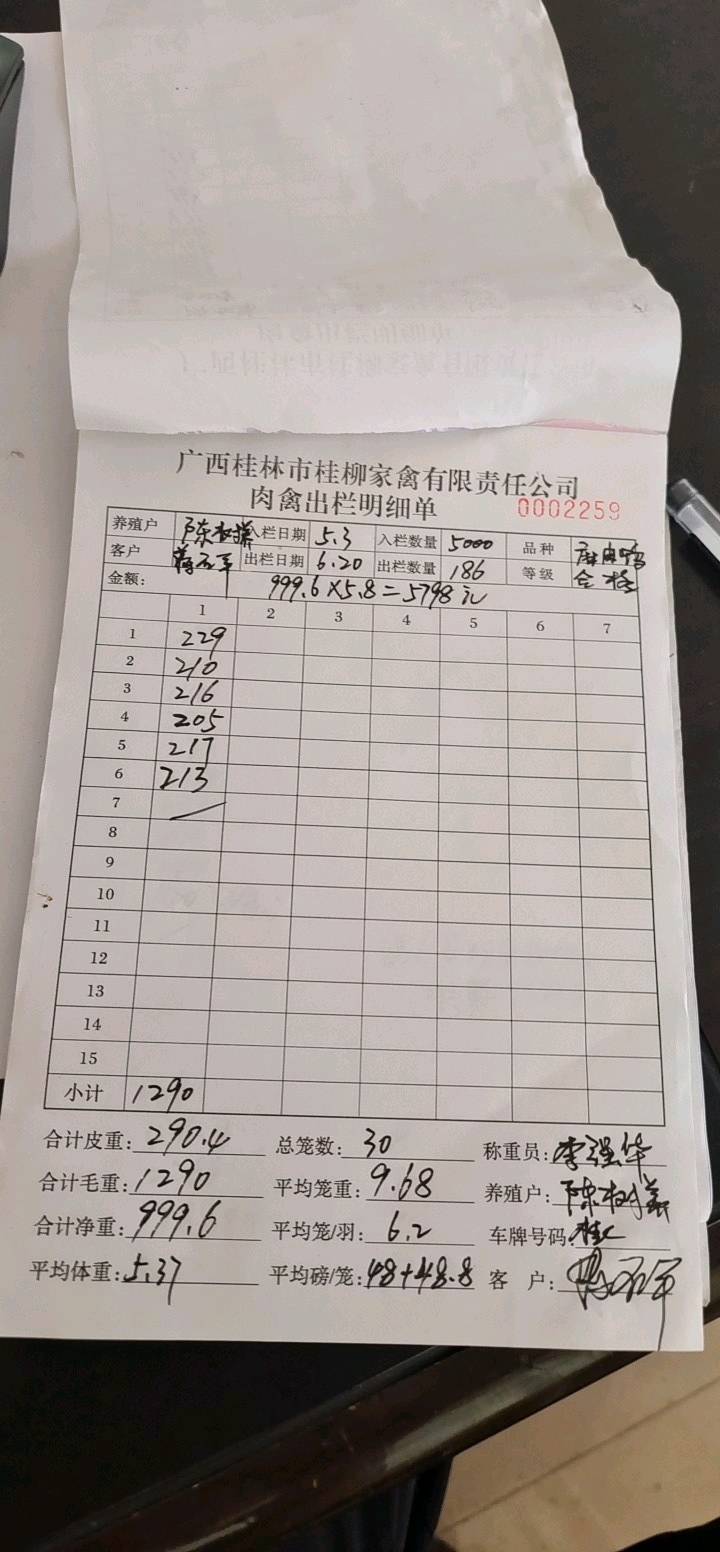 广西桂林市桂柳家禽有限责任公司
肉禽出栏明细单 0002259
养殖户 陈树 入栏日期 5.3 入栏数量 5000 品种
客户 出栏日期 6.20 出栏数量 186 等级 合格
金额: 999.6×5.8=5798元
1 2 3 4 5 6 7
1 229
2 210
3 216
4 205
5 217
6 213
7
8
9
10
11
12
13
14
15
小计 1290
合计皮重: 290.4 总笼数: 30 称重员: 李强华
合计毛重: 1290 平均笼重: 9.68 养殖户: 陈树
合计净重: 999.6 平均笼/羽: 6.2 车牌号码: 桂
平均体重: 5.37 平均磅/笼: 48+48.8 客 户: